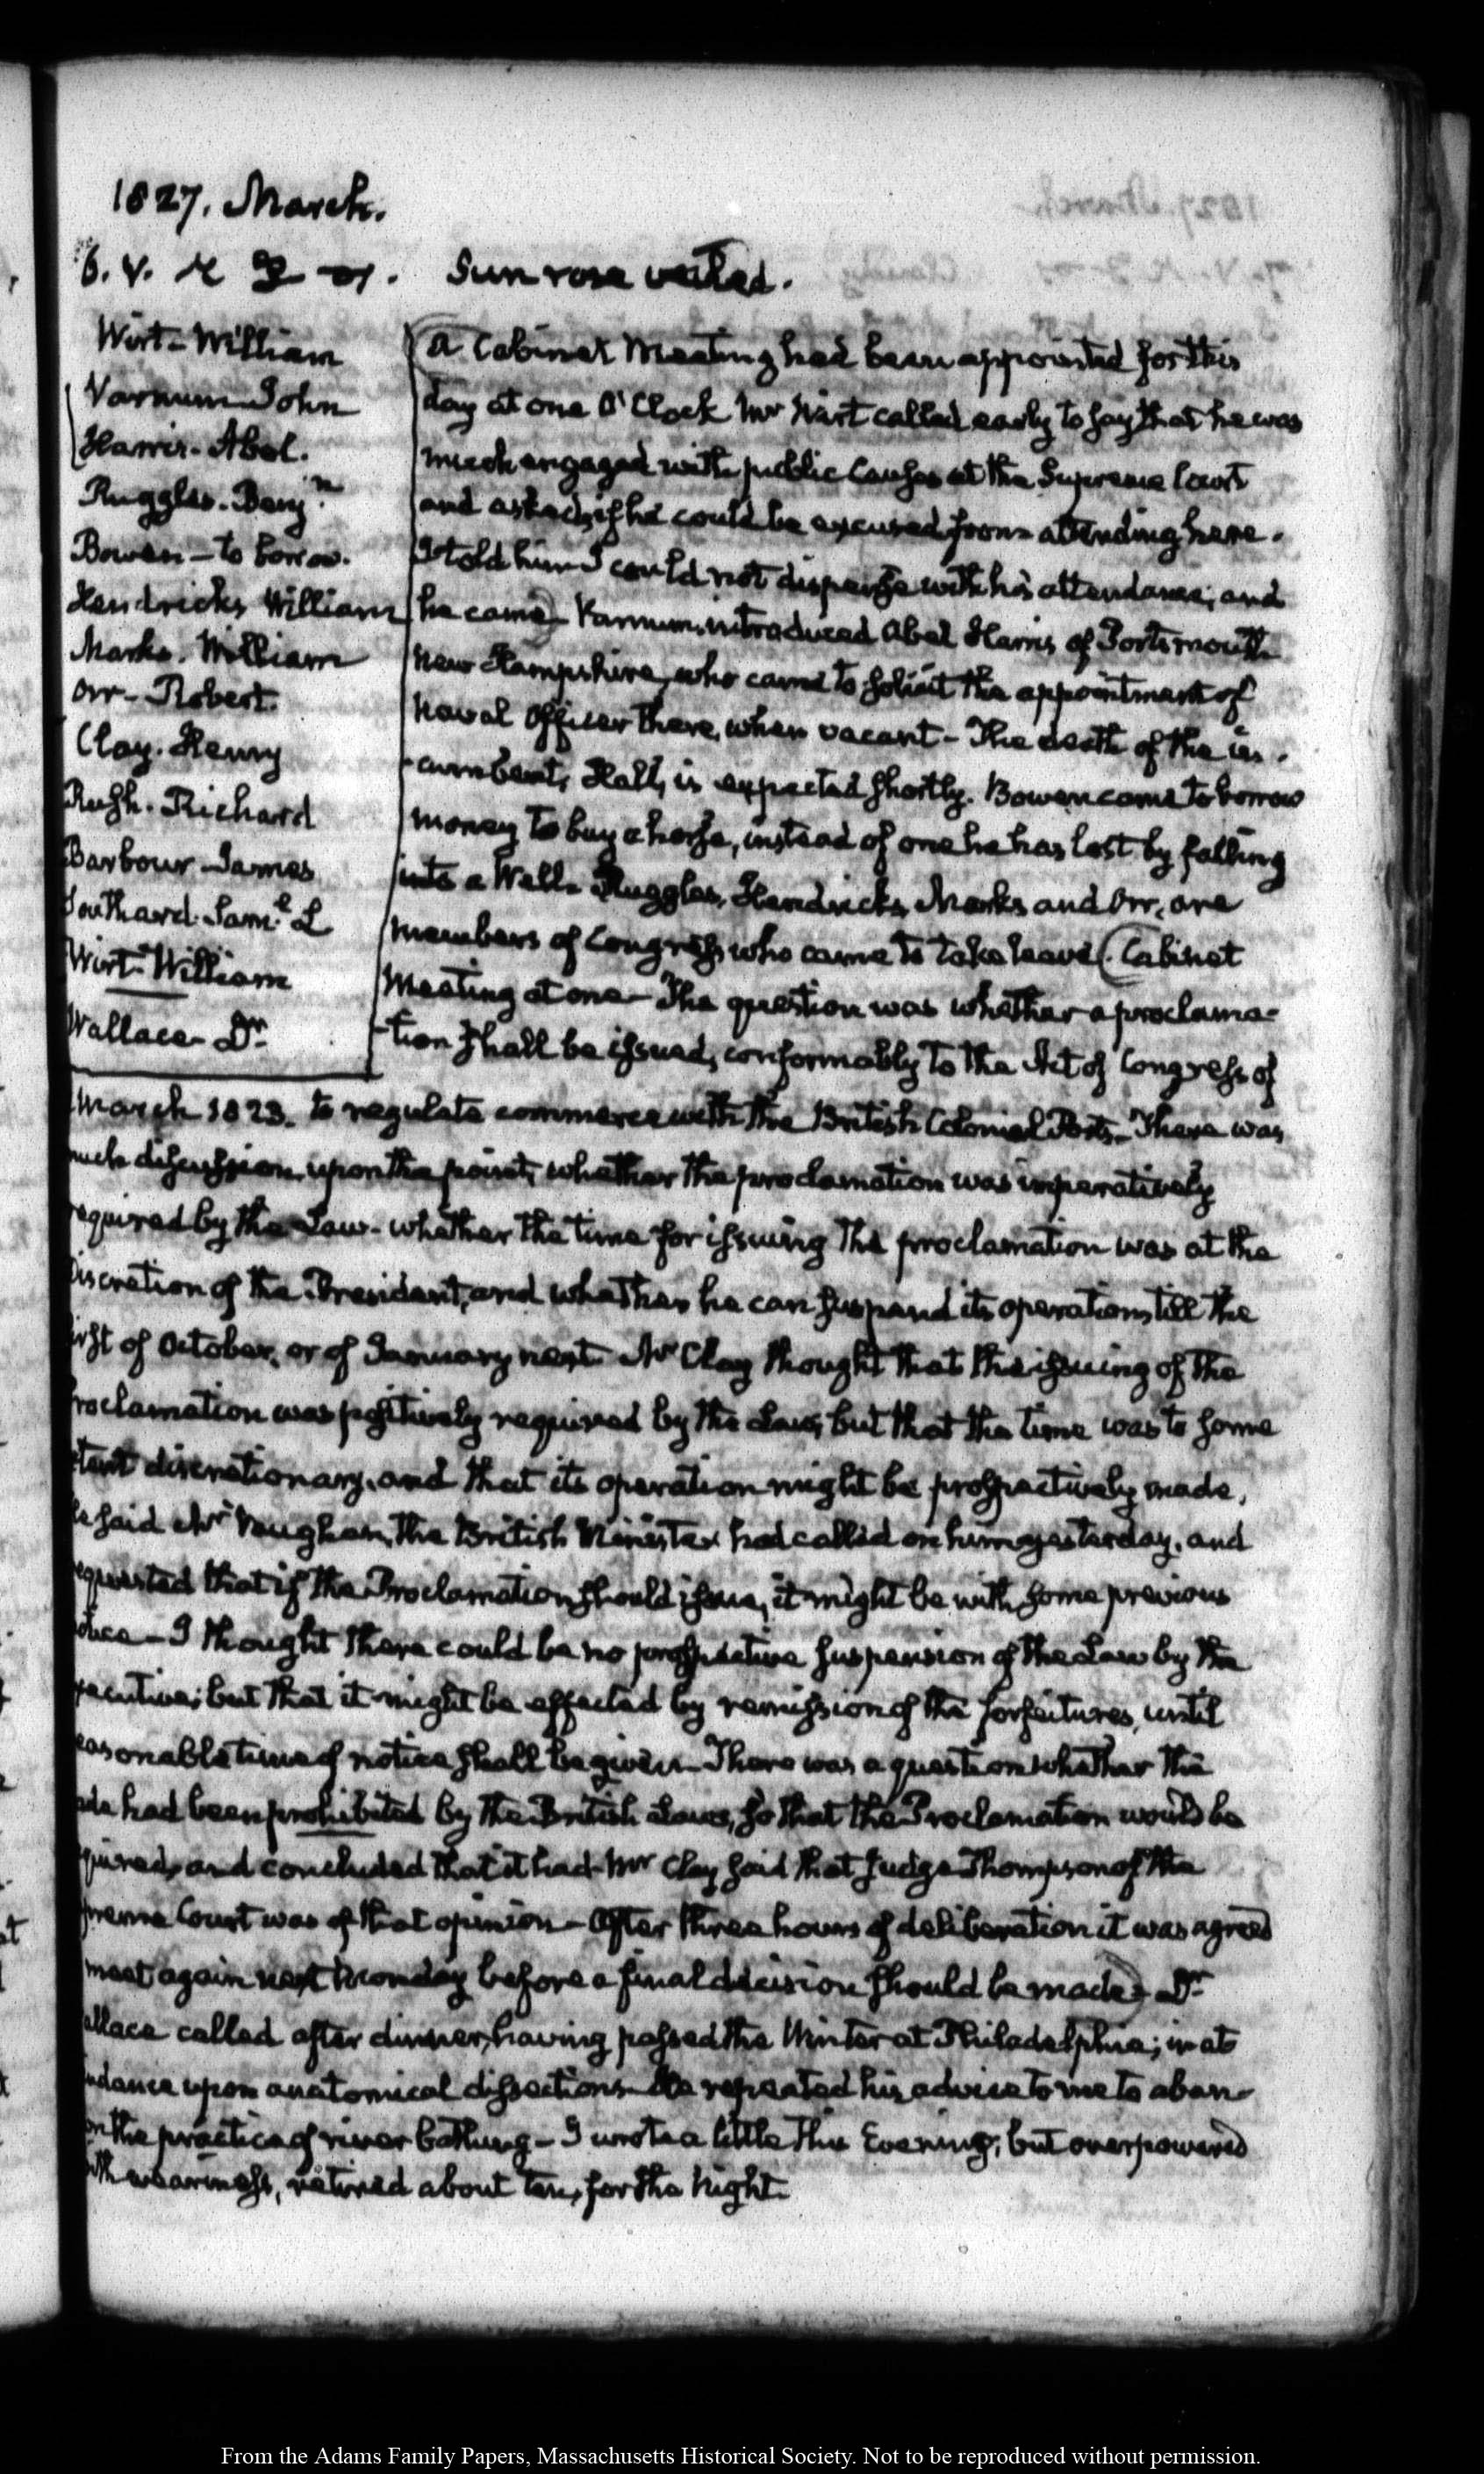 1827. March.
6. V. Sun rose veiled.
Wirt - William
Varnum John
Harris - Abel.
Ruggles. Benj.n
Bowen - to borrow.
Hendricks William
Marks. William
Orr - Robert.
Clay. Henry
Rush. Richard
Barbour James
Southard. Sam.l L
Wirt. William
Wallace - Dr.
(A Cabinet Meeting had been appointed for this
day at one O'Clock Mr Wirt called early to say that he was
much engaged with public Causes at the Supreme Court
and asked, if he could be excused from attending here.
I told him I could not dispense with his attendance; and
he came) Varnum introduced Abel Harris of Portsmouth
New Hampshire, who came to solicit the appointment of
Naval Officer there, when vacant - The death of the in-
-cumbent, Hall, is expected shortly. Bowen came to borrow
money to buy a horse, instead of one he has lost by falling
into a Well - Ruggles, Hendricks, Marks and Orr, are
members of Congress who came to take leave (Cabinet
Meeting at one - The question was whether a proclama-
-tion shall be issued, conformably to the Act of Congress of
March 1823. to regulate commerce with the British Colonial Ports - There was
much discussion upon the point, whether the proclamation was imperatively
required by the Law - whether the time for issuing the proclamation was at the
discretion of the President, and whether he can suspend its operation, till the
first of October, or of January next. Mr Clay thought that the issuing of the
Proclamation was positively required by the Law, but that the time was to some
extent discretionary, and that its operation might be prospectively made,
he said Mr Vaughan, the British Minister had called on him yesterday, and
requested that if the Proclamation should issue, it might be with some previous
notice - I thought there could be no prospective suspension of the Law by the
Executive; but that it might be effected by remission of the forfeitures, until
reasonable time of notice shall be given - There was a question whether the
trade had been prohibited by the British Laws, so that the Proclamation would be
required, and concluded that it had - Mr Clay said that Judge Thompson of the
Supreme Court was of that opinion - After three hours of deliberation it was agreed
meet again next Monday before a final decision should be made) - Dr.
Wallace called after dinner, having passed the Winter at Philadelphia; in at
tendance upon anatomical dissections - He repeated his advice to me to aban-
don the practice of river bathing - I wrote a little this Evening, but overpowered
with weariness, retired about ten, for the Night.
From the Adams Family Papers, Massachusetts Historical Society. Not to be reproduced without permission.